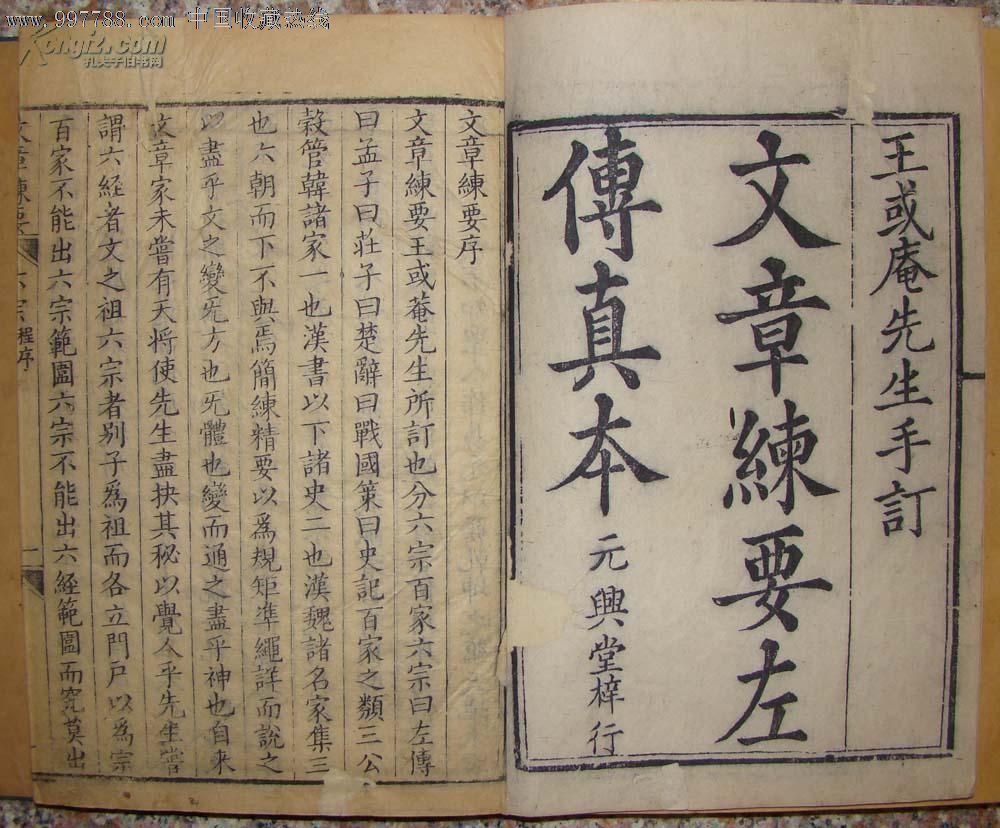 www.997788.com 中国收藏热线
Kongfz.com
孔夫子旧书网
王或庵先生手訂
文章練要左
傳真本
元興堂梓行
文章練要序
文章練要王或菴先生所訂也分六宗百家六宗曰左傳
曰孟子曰莊子曰楚辭曰戰國策曰史記百家之類三公
穀管韓諸家一也漢書以下諸史二也漢魏諸名家集三
也六朝而下不與焉簡練精要以爲規矩準繩詳而說之
以盡乎文之變旡方也旡體也變而通之盡乎神也自來
文章家未嘗有天將使先生盡抉其秘以覺今乎先生嘗
謂六經者文之祖六宗者别子爲祖而各立門戸以爲宗
百家不能出六宗範圍六宗不能出六經範圍而究莫出
文章練要 六宗 程序 一